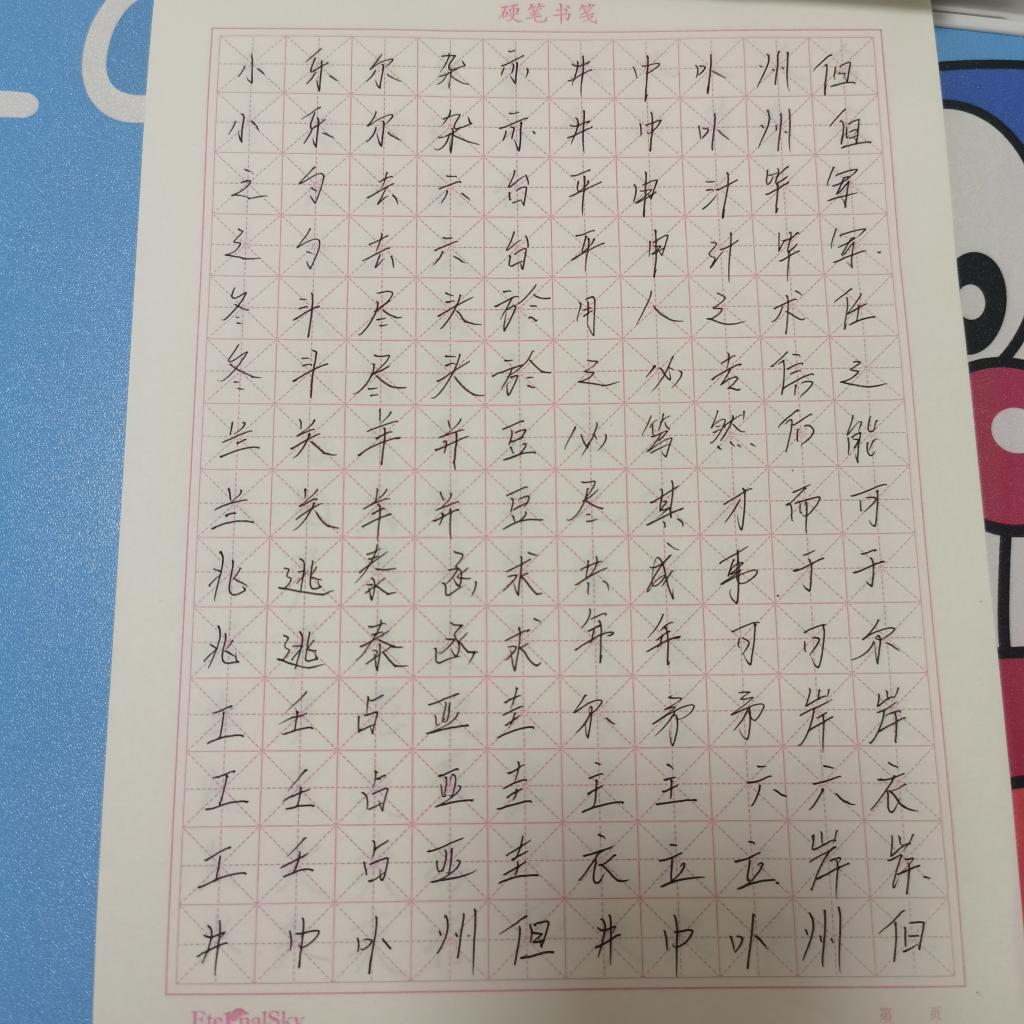 硬笔书笺
小 乐 尔 杂 亦 井 巾 卟 州 但
小 乐 尔 杂 亦 井 中 卟 州 但
之 勺 去 六 台 平 申 汁 毕 军
之 勺 去 六 台 平 申 计 毕 军
冬 斗 尽 头 於 用 人 之 术 任
冬 斗 尽 头 於 之 必 专 信 之
兰 关 羊 并 豆 必 笃 然 后 能
兰 关 羊 并 豆 尽 其 才 而 可
兆 逃 泰 函 求 共 成 事 于 于
兆 逃 泰 函 求 年 年 可 可 尔
工 壬 占 亚 圭 尔 矛 矛 岸 岸
工 壬 占 亚 圭 主 主 六 六 衣
工 壬 占 亚 圭 衣 立 立 岸 岸
井 中 卟 州 但 井 中 卟 州 但
EternalSky 第 页